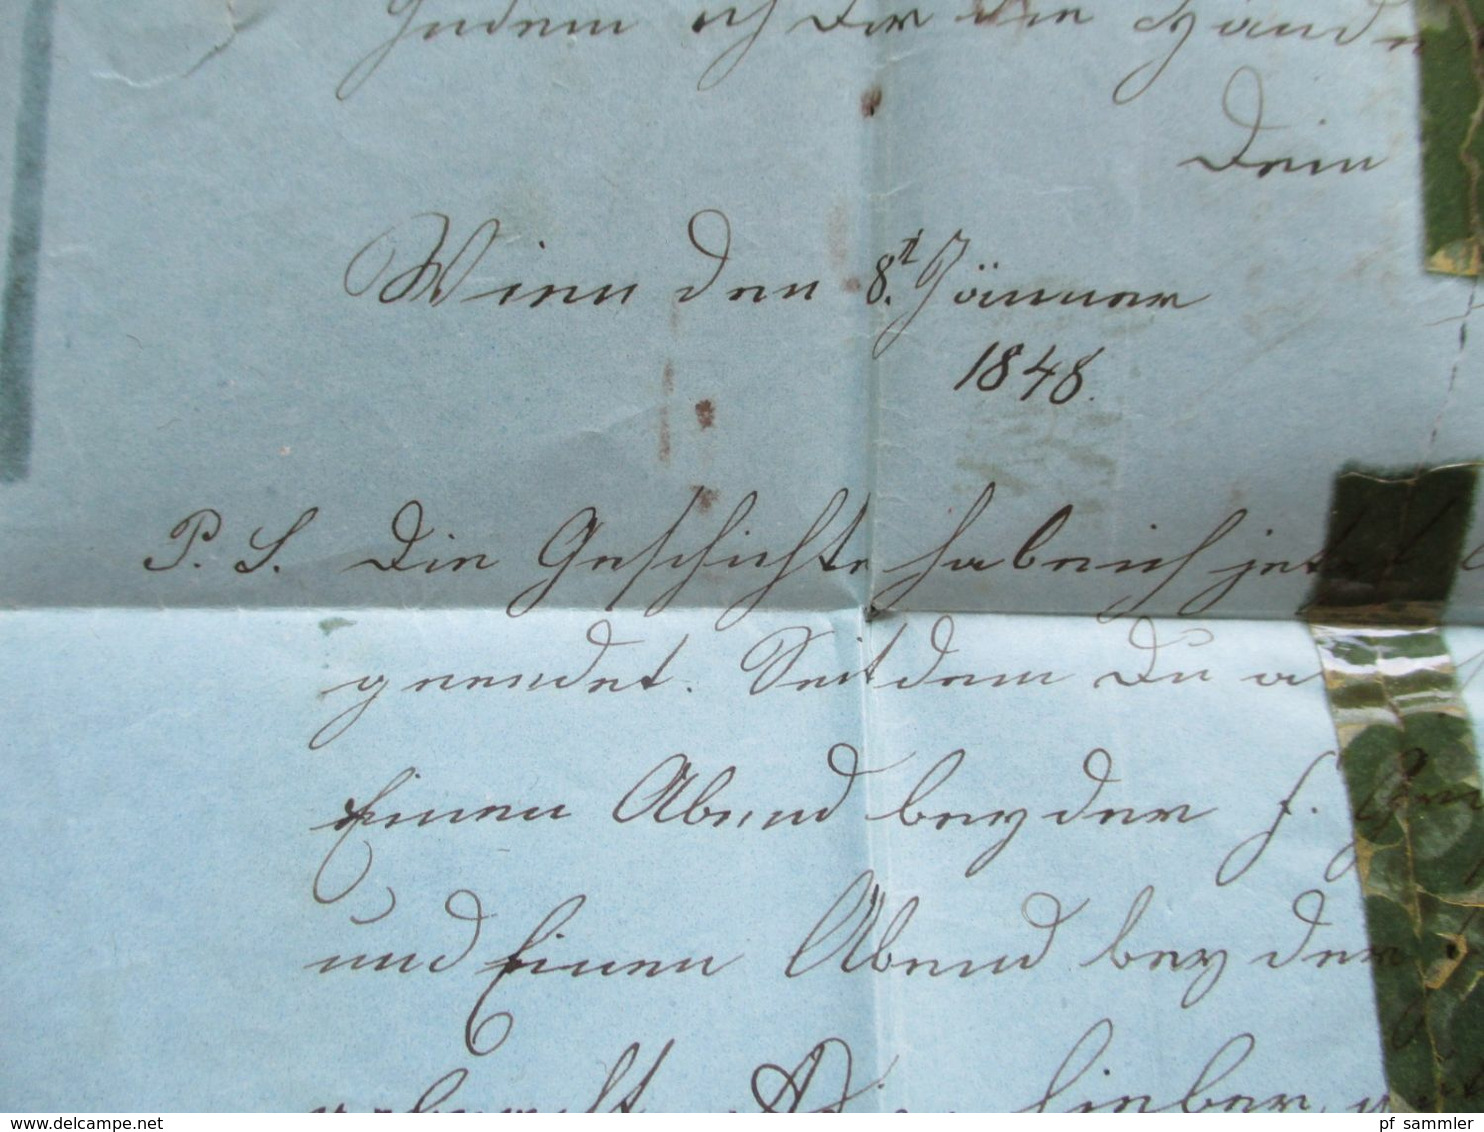 Indem ich Dir die Hände
Dein
Wien den 8.t Jänner
1848.
P. S. Die Geschichte habe ich jetzt
geendet. Seitdem Du
Einen Abend bey der f.
und Einen Abend bey der
gebracht lieber
www.delcampe.net
pf_sammler